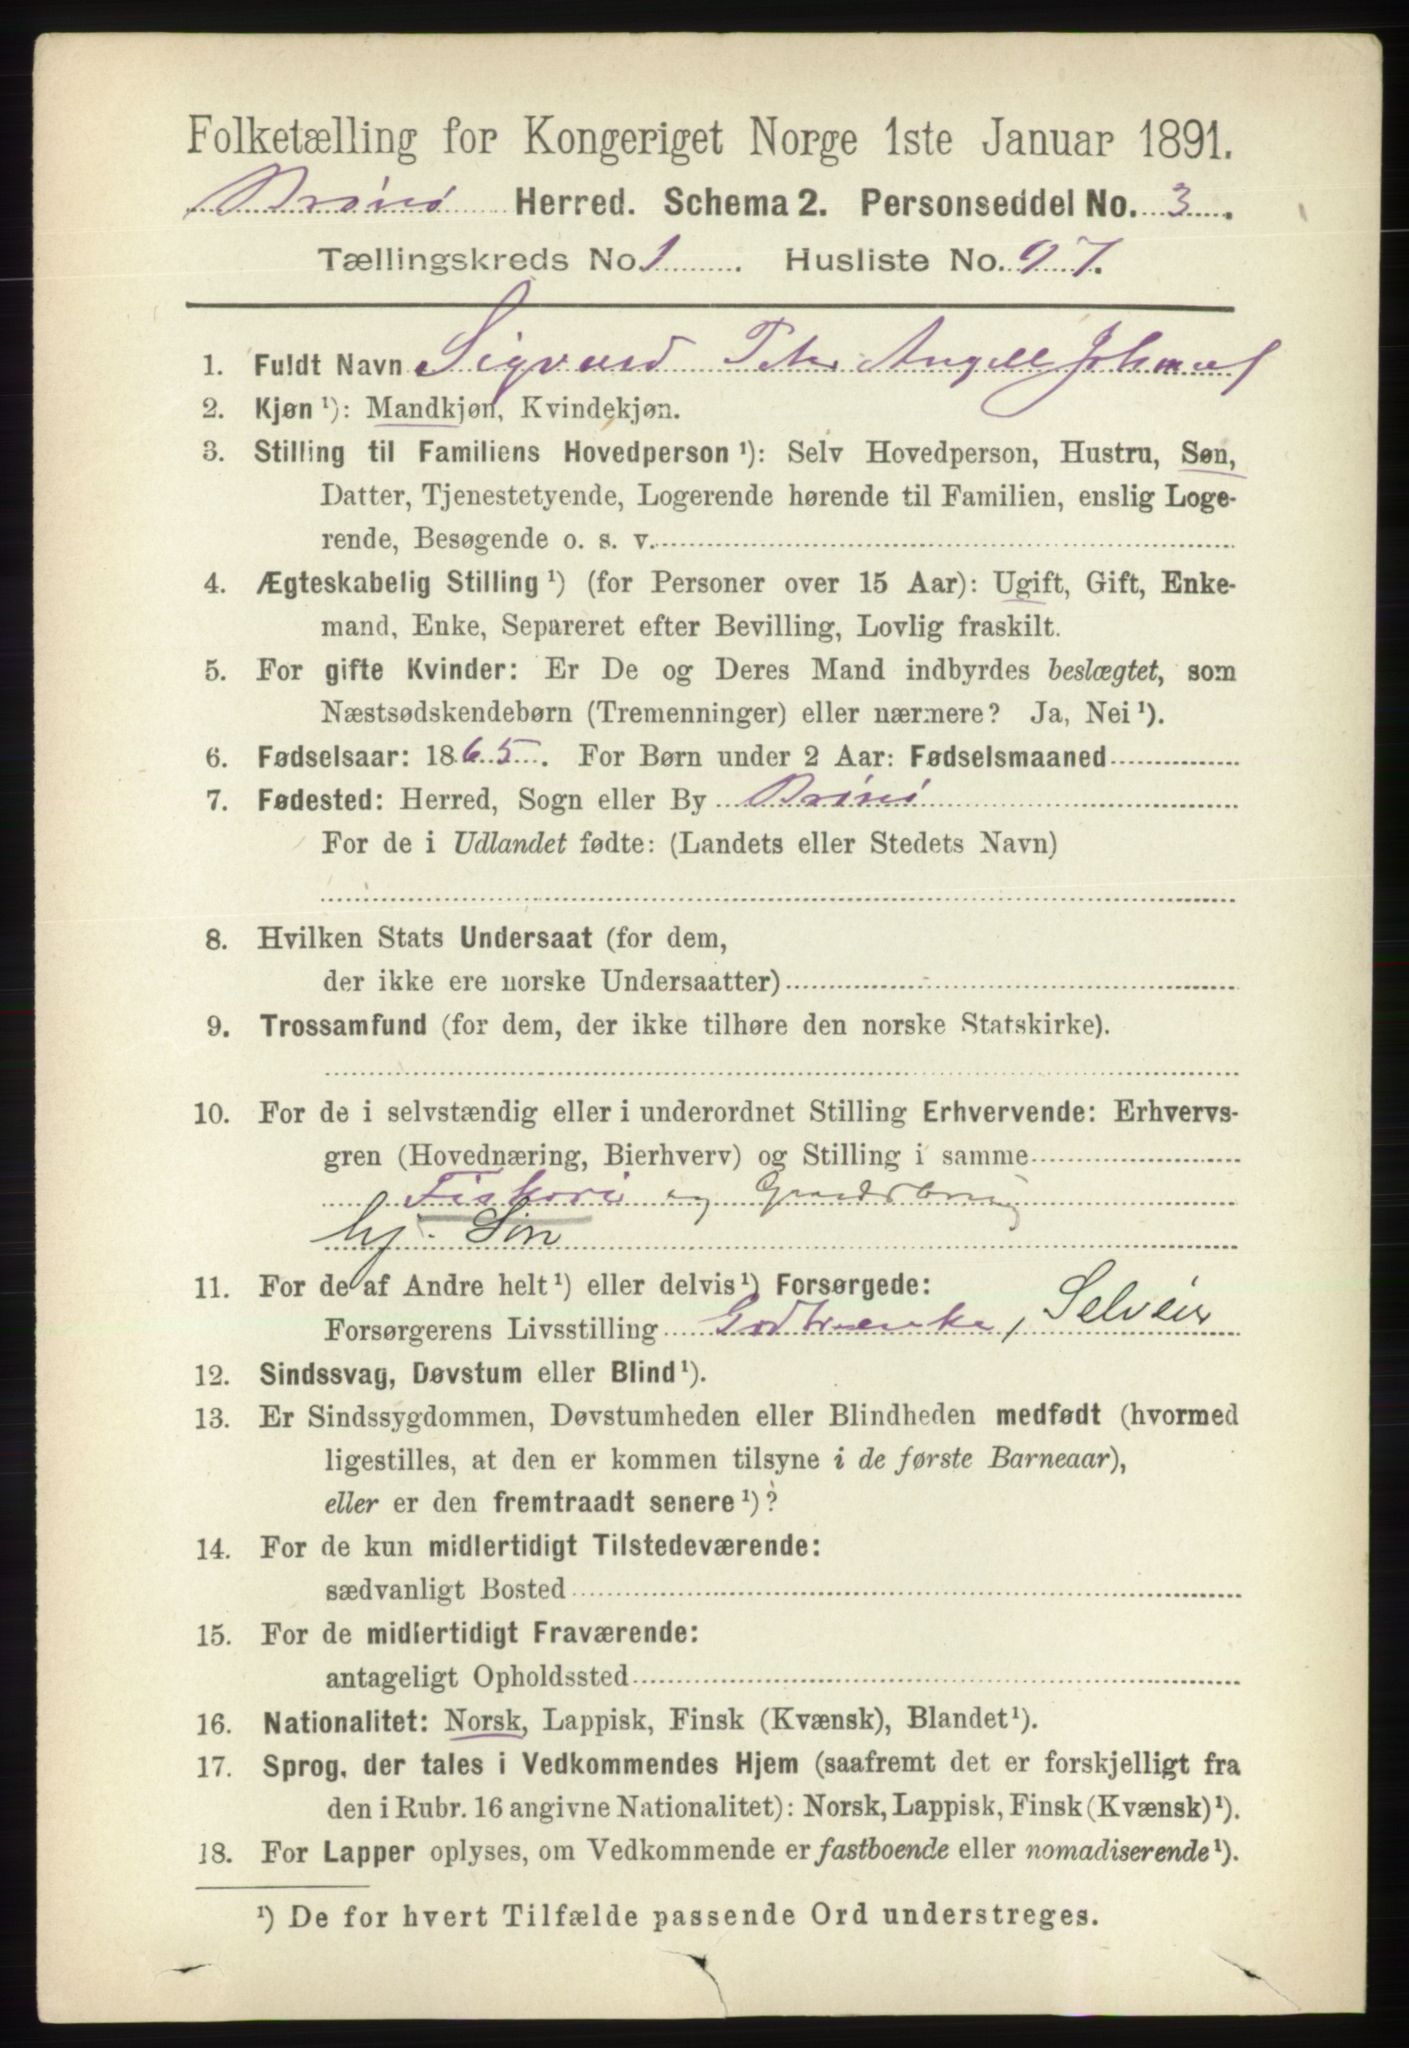 Folketælling for Kongeriget Norge 1ste Januar 1891.
Brønø Herred. Schema 2. Personseddel No. 3.
Tællingskreds No 1. Husliste No. 97.
1. Fuldt Navn Sigvard Peter Angell
2. Kjøn ¹): Mandkjøn, Kvindekjøn.
3. Stilling til Familiens Hovedperson ¹): Selv Hovedperson, Hustru, Søn,
Datter, Tjenestetyende, Logerende hørende til Familien, enslig Loge-
rende, Besøgende o. s. v.
4. Ægteskabelig Stilling ¹) (for Personer over 15 Aar): Ugift, Gift, Enke-
mand, Enke, Separeret efter Bevilling, Lovlig fraskilt.
5. For gifte Kvinder: Er De og Deres Mand indbyrdes beslægtet, som
Næstsødskendebørn (Tremenninger) eller nærmere? Ja, Nei ¹).
6. Fødselsaar: 1865. For Børn under 2 Aar: Fødselsmaaned
7. Fødested: Herred, Sogn eller By Brønø
For de i Udlandet fødte: (Landets eller Stedets Navn)
8. Hvilken Stats Undersaat (for dem,
der ikke ere norske Undersaatter)
9. Trossamfund (for dem, der ikke tilhøre den norske Statskirke).
10. For de i selvstændig eller i underordnet Stilling Erhvervende: Erhvervs-
gren (Hovednæring, Bierhverv) og Stilling i samme
Fiskeri og Gaardsbrug
hj. Søn
11. For de af Andre helt ¹) eller delvis ¹) Forsørgede:
Forsørgerens Livsstilling Gdbr enke, Selveier
12. Sindssvag, Døvstum eller Blind ¹).
13. Er Sindssygdommen, Døvstumheden eller Blindheden medfødt (hvormed
ligestilles, at den er kommen tilsyne i de første Barneaar),
eller er den fremtraadt senere ¹)?
14. For de kun midlertidigt Tilstedeværende:
sædvanligt Bosted
15. For de midlertidigt Fraværende:
antageligt Opholdssted
16. Nationalitet: Norsk, Lappisk, Finsk (Kvænsk), Blandet ¹).
17. Sprog, der tales i Vedkommendes Hjem (saafremt det er forskjelligt fra
den i Rubr. 16 angivne Nationalitet): Norsk, Lappisk, Finsk (Kvænsk) ¹).
18. For Lapper oplyses, om Vedkommende er fastboende eller nomadiserende ¹).
¹) De for hvert Tilfælde passende Ord understreges.